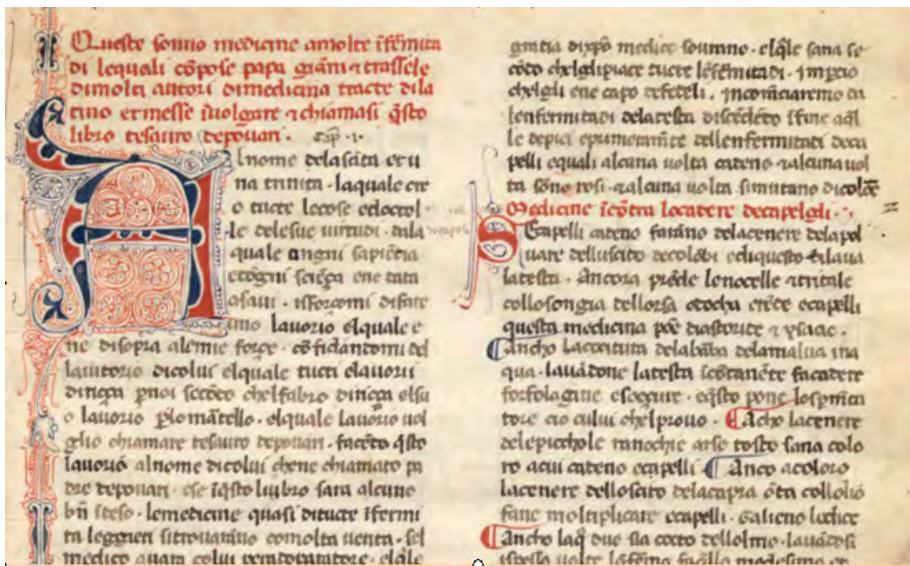 Queste sonno medicine amolte īfẽmita
di lequali cõpose papa giãni ⁊ trassele
dimolti autori dimedicina tracte dila
tino ermesse ĩuolgare ⁊ chiamasi q̃sto
libro tesauro depoueri. Cap̃. i.
Alnome delasãta et u
na trinita. laquale cre
o tucte lecose edoctol
le delesue uirtudi. dala
quale ongni sapiẽtia
ecogni sciẽça ene data
asaui. isforçomi difare
uno lauorio elquale e
ne disopra alemie forçe. cõfidandomi del
laiutorio dicolui elquale tucti elauorii
diriçça
o lauorio elquale lauorio uol
glio chiamare tesauro depoueri. facẽto q̃sto
lauorio alnome dicolui chene chiamato pa
dre depoueri. ese ĩq̃sto libro sara alcuno
bñ steso. lemedicine quasi ditucte ĩfermi
ta leggieri sitrouarãno comolta uerita. sel
medico colui elq̃le
gratia medico elq̃le sana se
cõdo chelglipiace tucte leĩfẽmitadi.
chelgli ene capo defedeli. incomĩciaremo da
lenfermitadi delatesta discẽdẽto ĩfine aq̃l
le depiei dellenfermitadi deca
pelli equali alcuna uolta cateno ⁊alcuna uol
ta sõno rosi. ⁊alcuna uolta simutano dicolõe
Medicine ĩcõtra locadere decapelgli.
Secapelli cateno farãno delacenere delapol
uare delluscito decolõbi ediquesto ẽlaua
latesta. Ancora prẽde lenocelle ⁊tritale
collosongia dellorsa ecocha crece ecapelli
questa medicina põe diascorite ⁊ ysaac.
Ancho lacocitura delabãba delamalua ĩna
qua. lauãdone latesta ĩcõtanẽte facadere
forfolagine esocçure. eq̃sto pone
tore cio cului chelprouo. Acho lacenere
delepicchole ranochie arse tosto sana colo
ro acui cateno ecapelli Anco acoloro
lacenere delloscito delacapra õta collolio
fane moltiplicare ecapelli. Galieno lodice
Ancho laq̃ due sia cocto dellolmo. lauãdosi